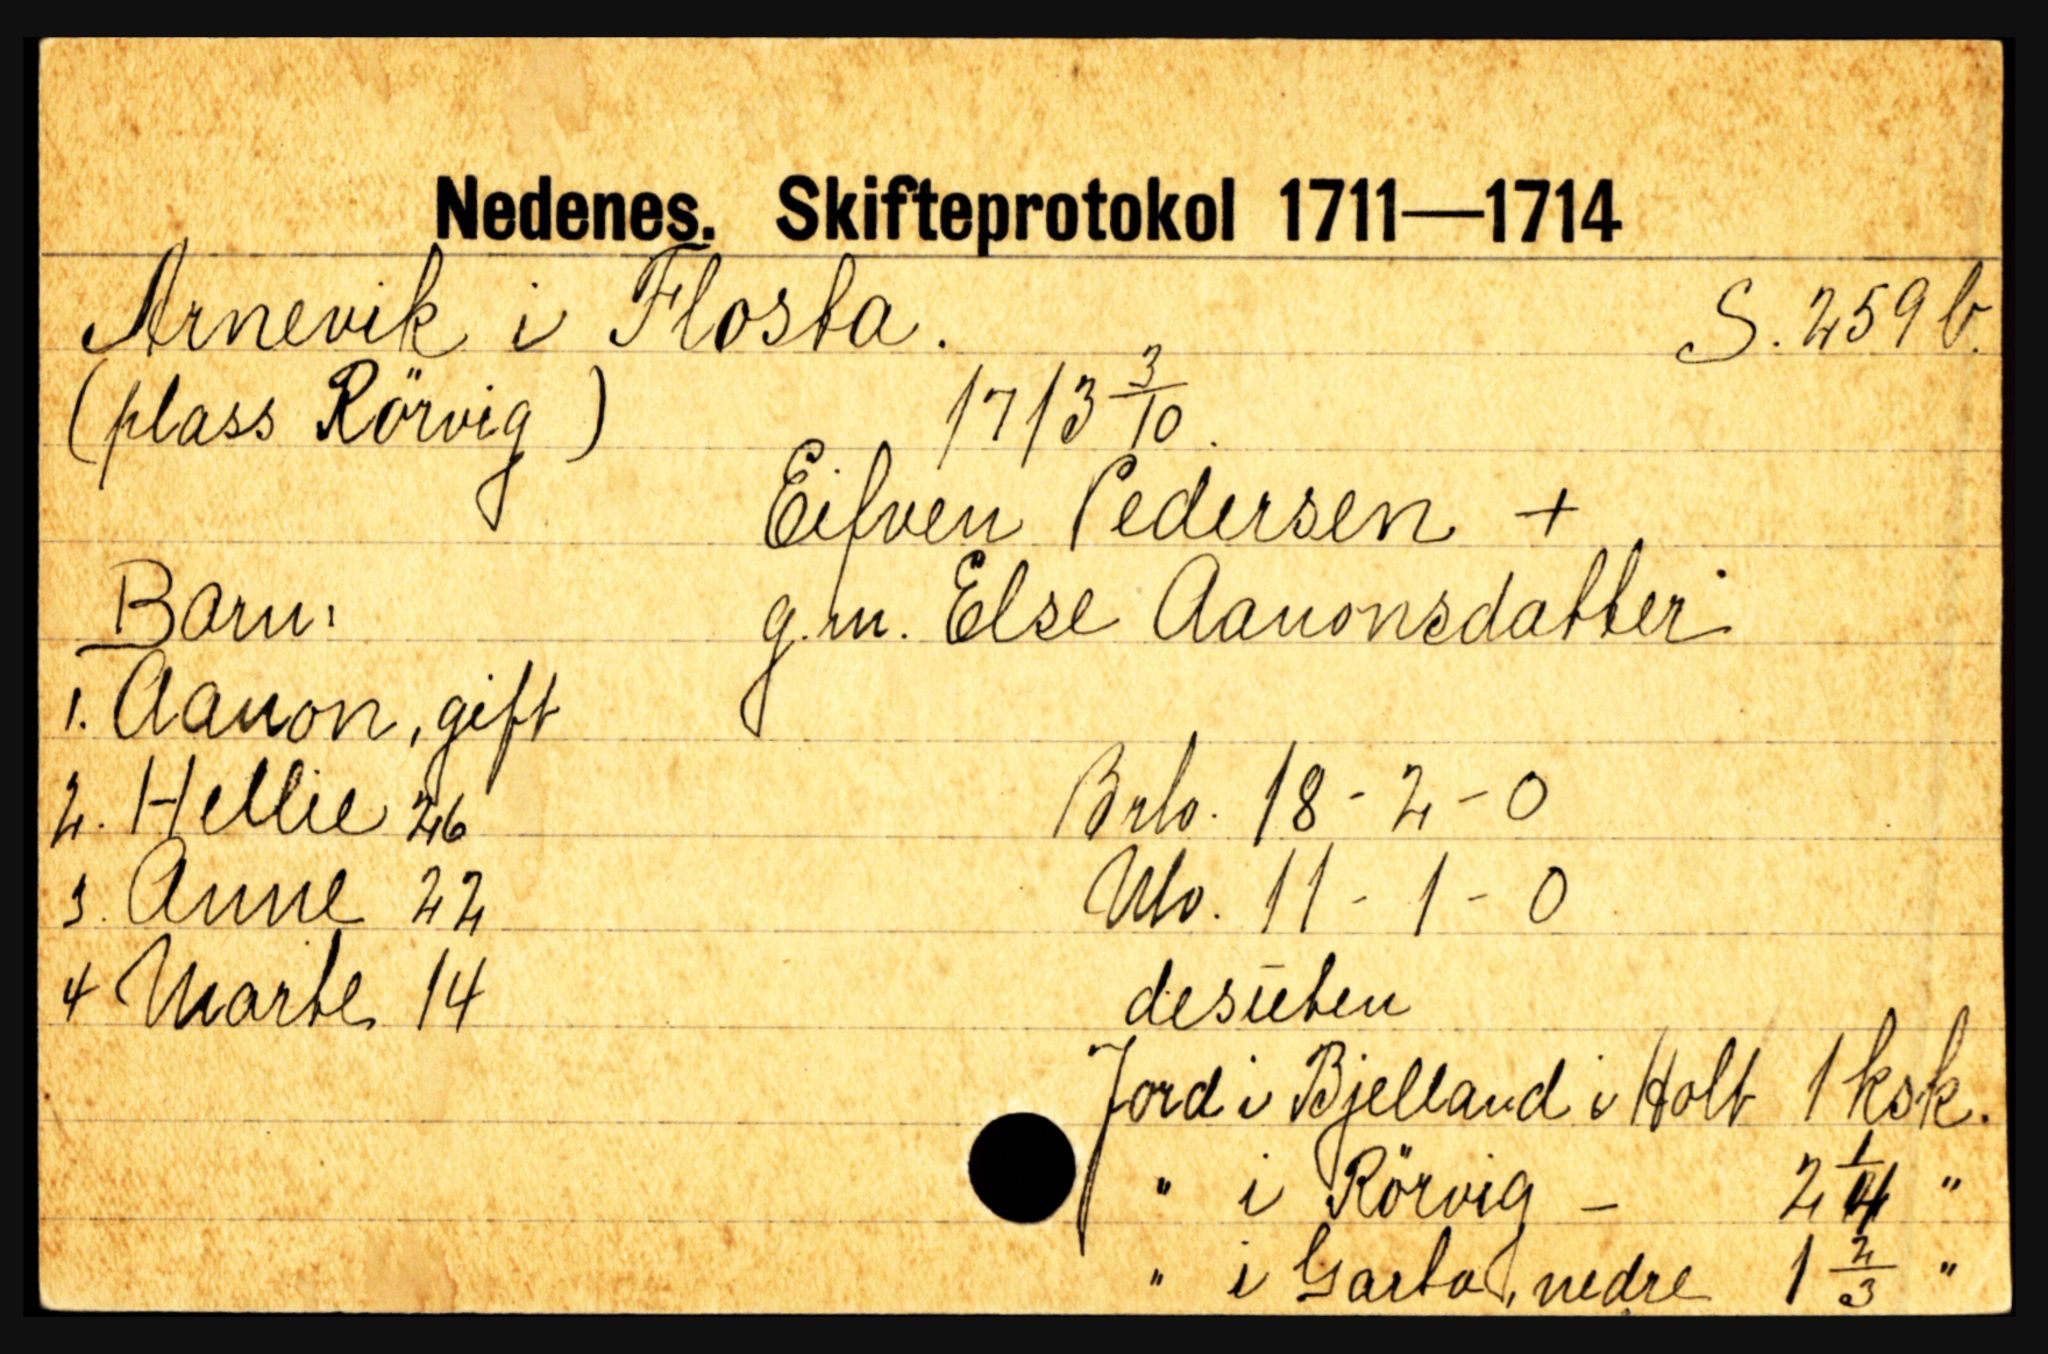 Nedenes. Skifteprotokol 1711—1714
Arnevik i Flosta. S. 259 b.
(plass Rörvig) 1713 3/10.
Eifven Pedersen +
Barn: g.m. Else Aanonsdatter
1. Aanon, gift
2. Hellie 26 Brto. 18 - 2 - 0
3. Anne 22 Nto. 11 - 1 - 0
4 Marte 14 desuten
Jord i Bjelland i Holt 1 ksk.
" i Rörvig - 2 1/4 "
" i Garta, nedre 1 2/3 "